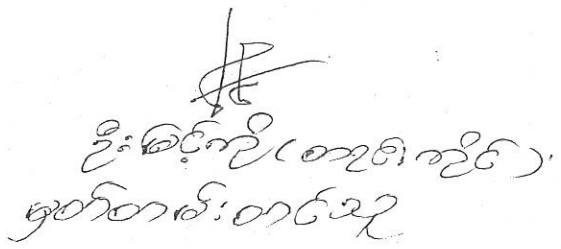 ဦးမြင့်ကို(တာဝန်ကိုင်)
မှတ်တမ်းတင်သူ